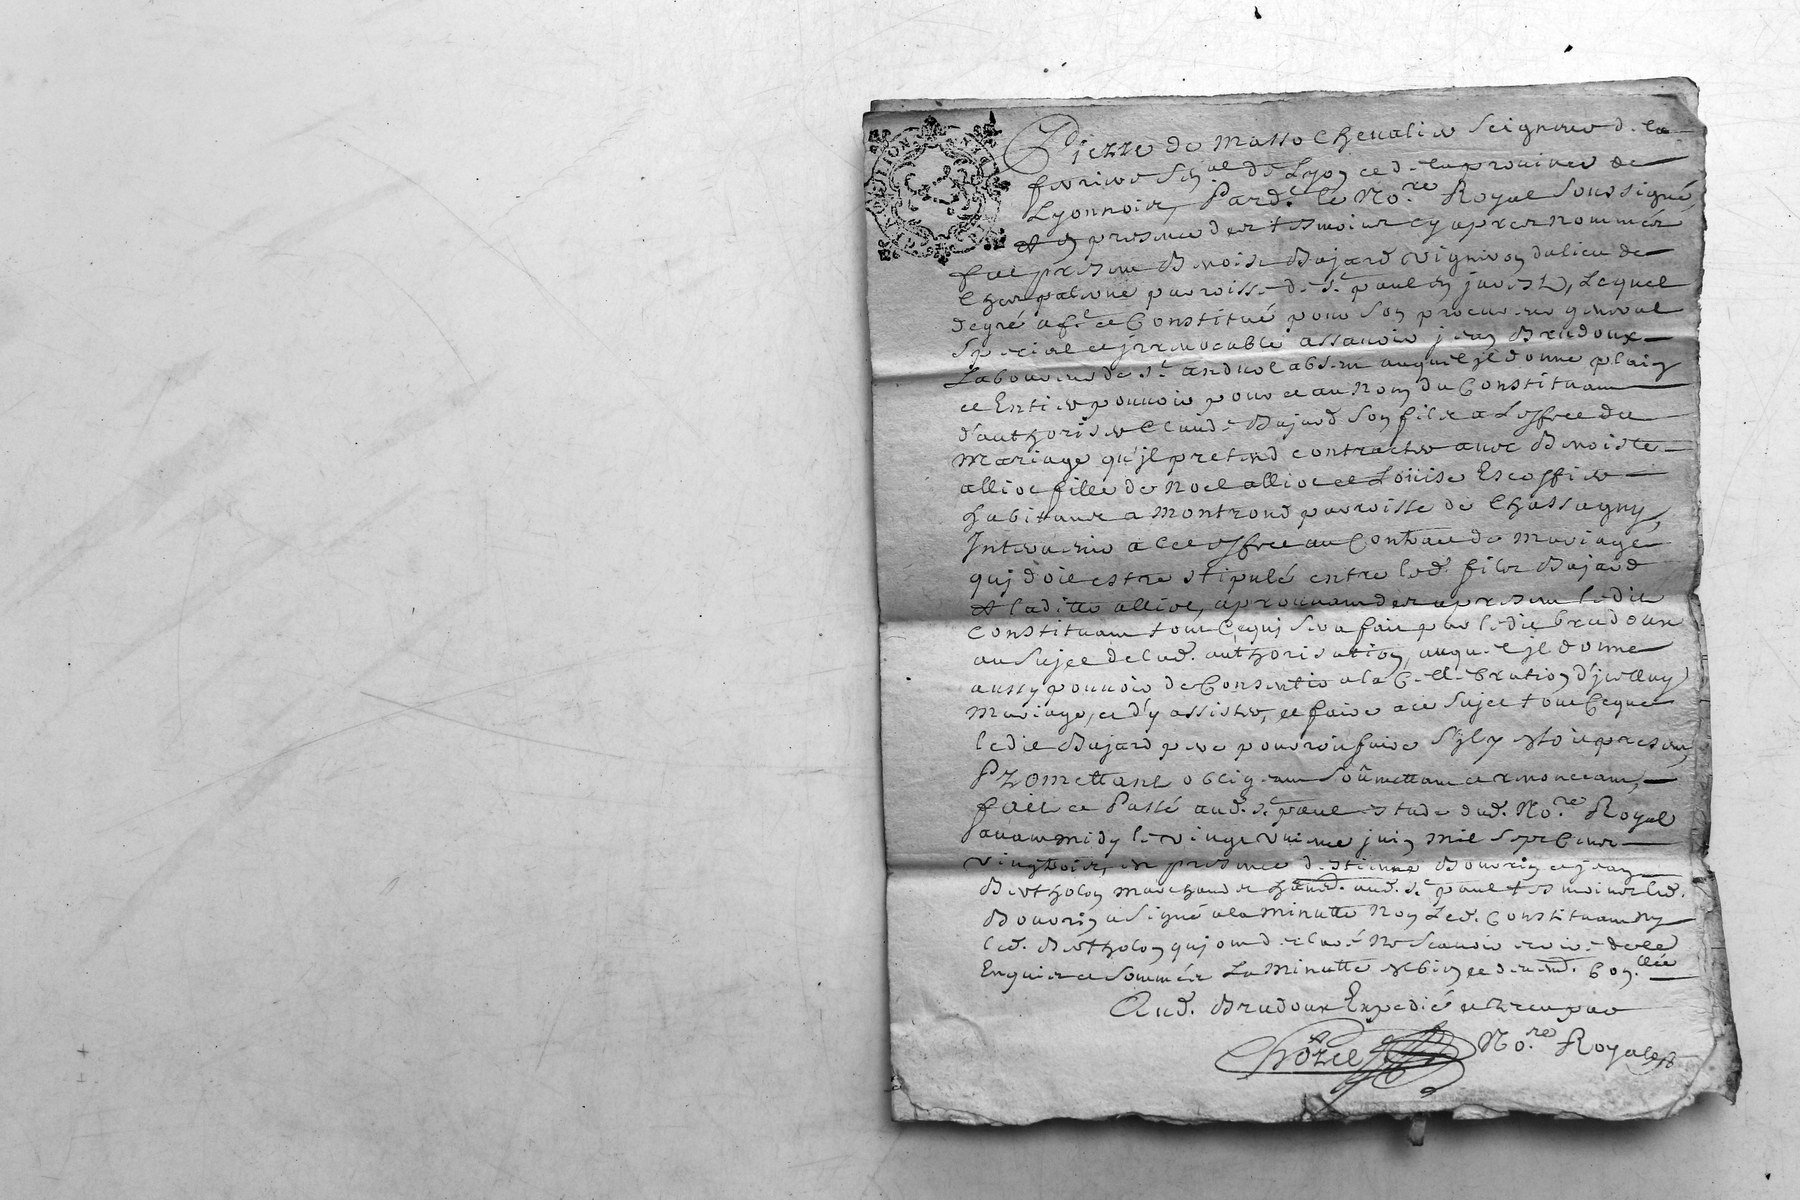 Pierre de Masso Chevalier Seigneur d. la
ferriere Sen.al de Lyon et d. la province de
Lyonnois, Pard.t le No.re Royal Soussigné,
et en presence des tesmoins cy apres nommés
fut present Benoist Bajard vigneron du lieu de
paroisse de S.t paul en jarest, Lequel
de gré a f.t et Constitué pour son procureur general
special et jrrevocable assavoir jean Brudoux
Laboureur de S.t andeol absent auquel jl donne plain
et Entier pouvoir pour et au Nom du Constituant
d'authoriser Claude Bajard son fils a L'effect du
Mariage qu'jl pretend contracter avec Benoiste
allioc fille de Noel allioc et Loüise Escoffier
habitants a Montrond parroisse de Chassagny,
Intervenir a cet effect au Contract de mariage
quj doit estre stipulé entre led. fils Bajard
et laditte allioc, aprouvant des apresent ledit
Constituant tout ce quj sera fait par ledit brudoux
au Sujet de lad. authorisation, auquel jl donne
aussy pouvoir de Consentir a la Cellebration d'jcelluy
Mariage, et d'y assister, et faire a ce sujet tout ce que
ledit Bajard pere pourroit faire S'jl y estoit present,
Promettant obligeant Soûmettant et renonceant,
fait et Passé aud. S.t paul estude dud. No.re Royal
avant midy le vingt juin mil sept cent
vingt trois, en presence d'Estienne Bouvrin et jean
Bertholon marchands aud. S.t paul tesmoins led.
Bouvrin a signé a la minutte Non Led. Constituant Ny
led. Bertholon quj ont declaré ne scavoir escrire de ce
Enquis et sommés La Minutte Con.llée
Aud. Brudoux Expedié par
No.re Royal